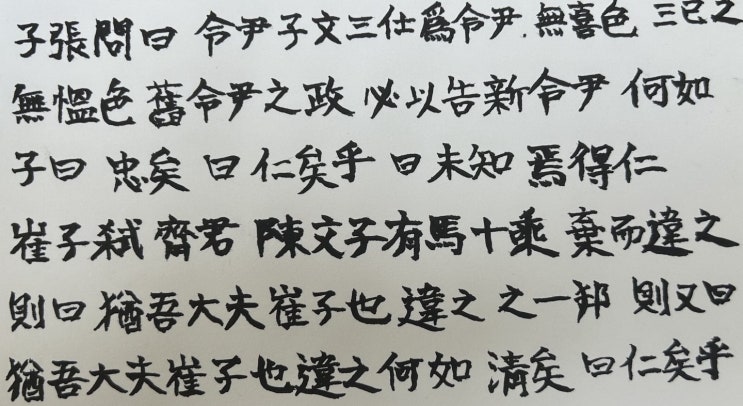 子張問曰 令尹子文三仕爲令尹 無喜色 三已之
無慍色 舊令尹之政 必以告新令尹 何如
子曰 忠矣 曰 仁矣乎 曰 未知 焉得仁
崔子弑 齊君 陳文子有馬十乘 棄而違之
則曰 猶吾大夫崔子也 違之 之一邦 則又曰
猶吾大夫崔子也違之何如 清矣 曰仁矣乎